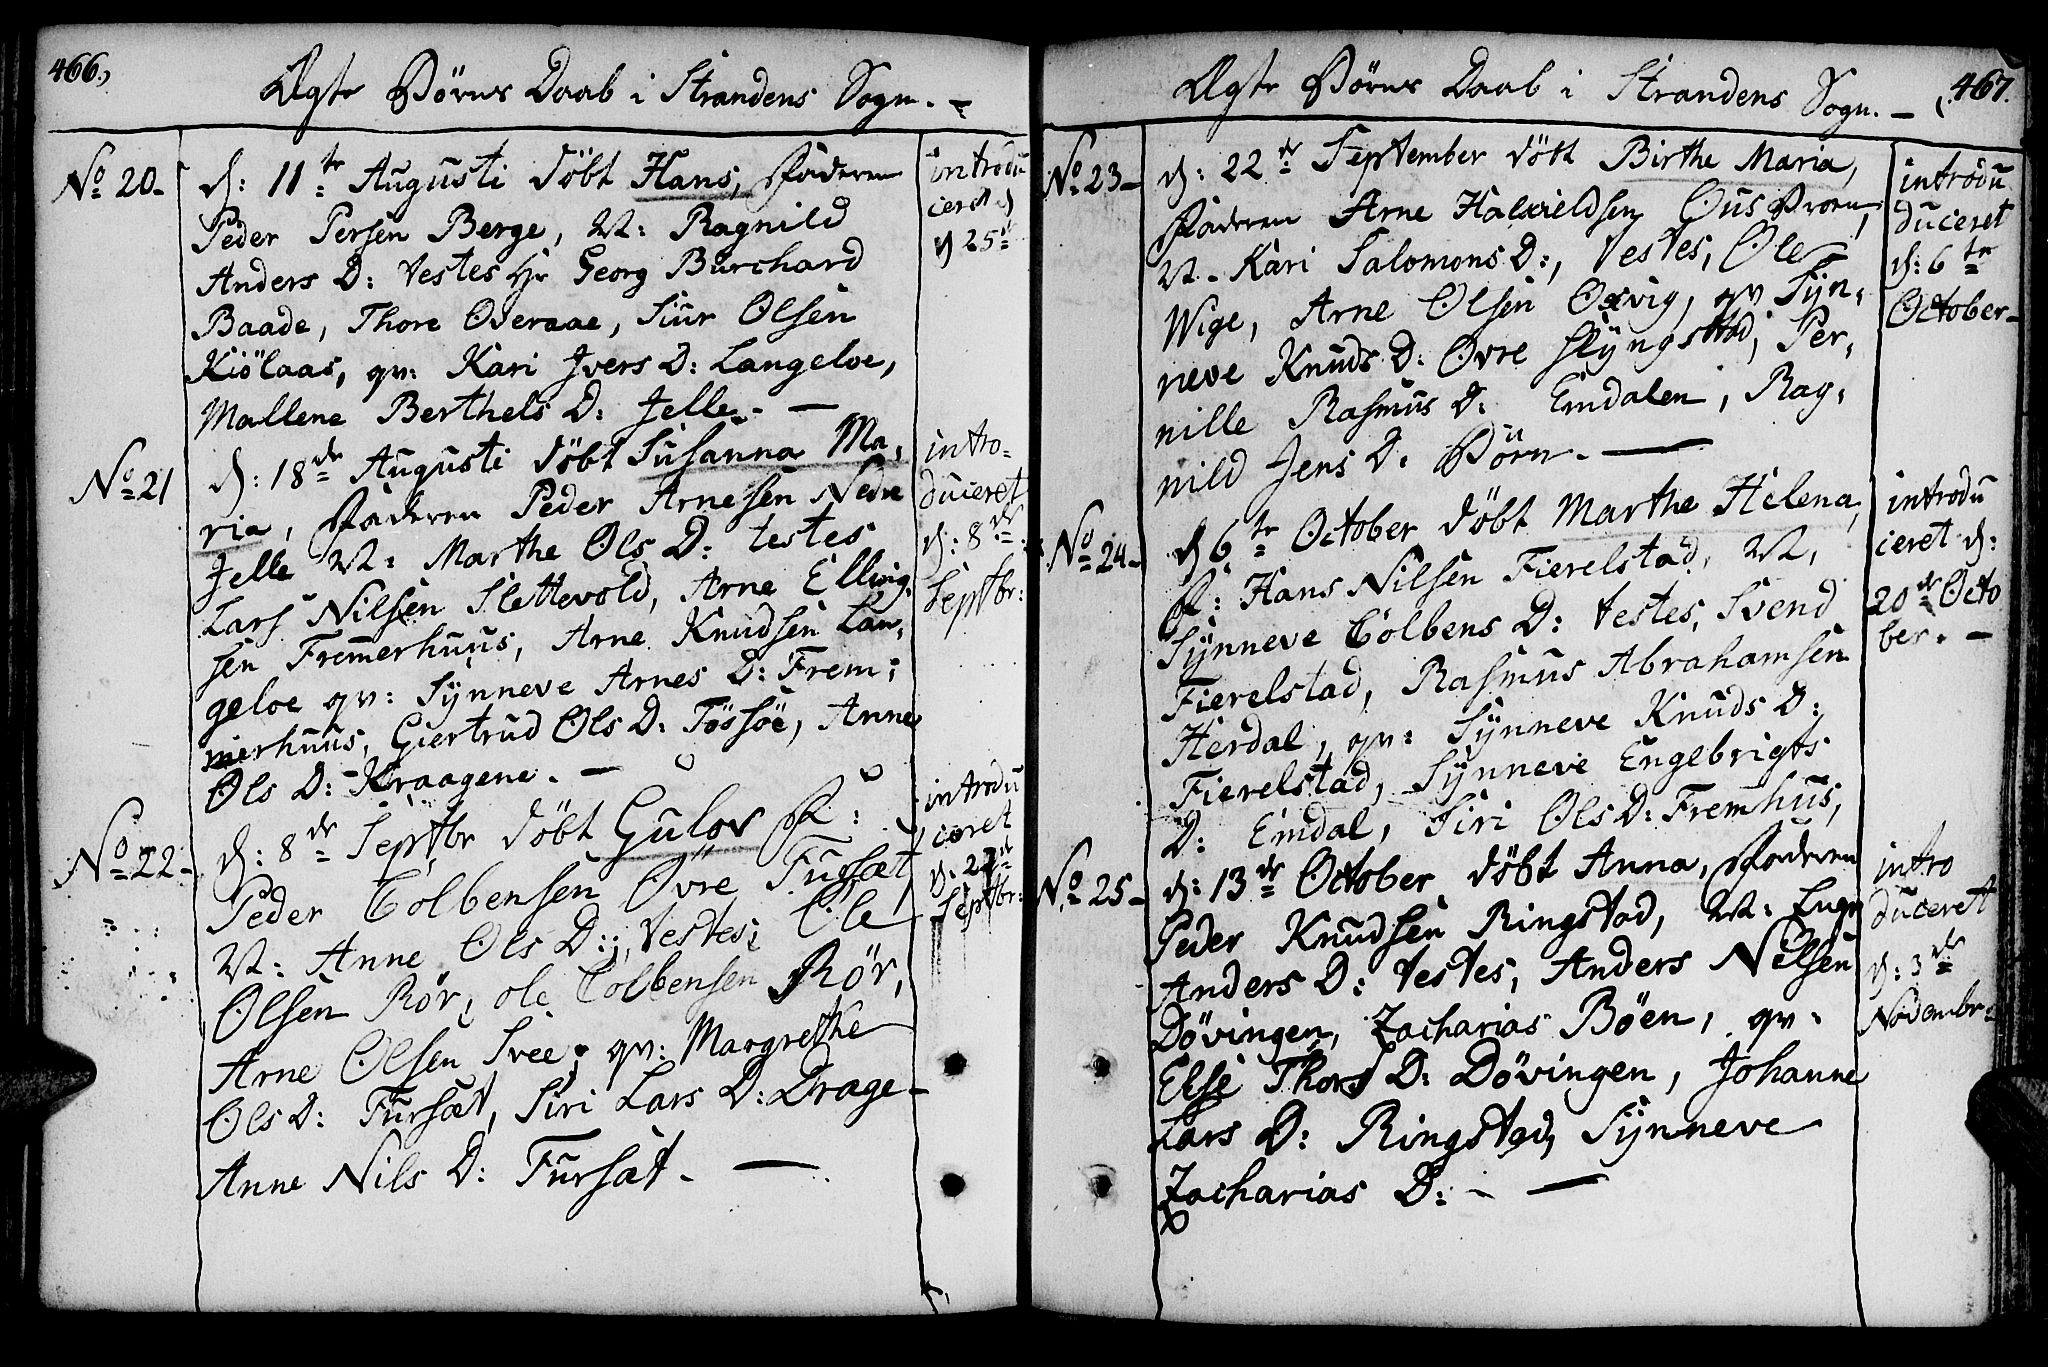 466.
Ægte Börns Daab i Strandens Sogn. -
No 20.
d: 11te Augusti döbt Hans, Faderen
Peder Persen Berge, M: Ragnild
Anders D: testes Hr Georg Burchard
Baade, Thore Overaae, Siur Olsen
Kiölaas, qv: Kari Jvers D: Langeloe,
Mallene Berthels D: Jelle. -
introdu
ceret d
d 25de
No 21
d: 18de Augusti döbt Susanna Ma,
ria, Faderen Peder Arnesen Nedre
Jelle M: Marthe Ols D: testes
Lars Nilsen Slettevold, Arne Elling,
sen Fremerhuus, Arne Knudsen Lan,
geloe qv: Synneve Arnes D: Frem,
merhuus, Giertrud Ols D: Tössöe, Anne
Ols D: Kraagene. -
intro-
duceret
d: 8de
Septbr:
No 22-
d: 8de Septbr döbt Gulov F:
Peder Colbensen Övre Fursæt,
M: Anne Ols D:, testes, Ole
Olsen Rör, ole Colbensen Rör,
Arne Olsen Svee, qv: Margrethe
Ols D: Fursæt, Siri Lars D: Drage-
Anne Nils D: Fursæt. -
introdu
ceret
d. 22de
Septbr:
467.
Ægte Börns Daab i Strandens Sogn. -
No 23-
d: 22de September döbt Birthe Maria,
Faderen Arne Halvieldsen Ous
M. Kari Salomons D:, testes, Ole
Wige, Arne Olsen Oxvig, qv Syn,
neve Knuds D: Övre Slyngstad, Per,
nille Rasmus D: Emdalen, Rag,
nild Jens D: Börn. -
introdu
duceret
d: 6te
October-
No 24-
d 6te October döbt Marthe Helena,
F: Hans Nilsen Fierelstad, M,
Synneve Colbens D: testes, Svend
Fierelstad, Rasmus Abrahamsen
Herdal, qv: Synneve Knuds D:
Fierelstad, Synneve Engebrigts
D: Emdal, Siri Ols D: Fremhus,
introdu
ceret d:
20de Octo
ber. -
No 25-
d: 13de October döbt Anna, Faderen
Peder Knudsen Ringstad, M:
Anders D: testes, Anders Nilsen
Dövingen, Zacharias Böen, qv:
Else Thors D: Dövingen, Johanne
Lars D: Ringstad, Synneve
Zacharias D: - -
intro
duceret
d: 3de
Novembr: